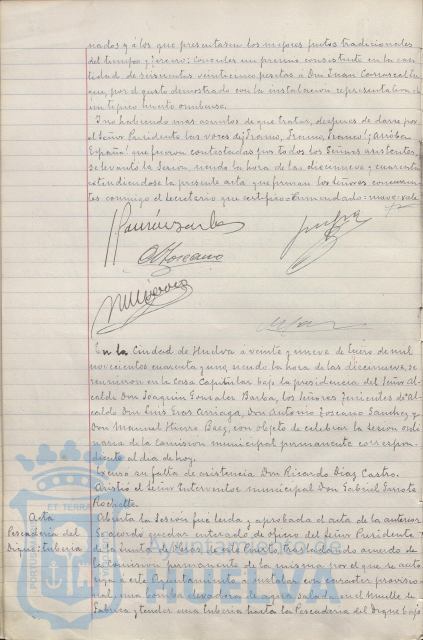 nados y á los que presentaron los mejores frutos tradicionales
del tiempo y tercero: Conceder un premio consistente en la can-
tidad de seiscientas veinticinco pesetas a Don Juan
que, por el gusto demostrado con la instalacion representativa de
un tipico huerto onubense.
Y no habiendo mas asuntos de que tratar, despues de darse por
el Señor Presidente las voces de ¡Franco, Franco, Franco! ¡Arriba
España! que fueron contestadas por todos los Señores asistentes,
se levantó la Sesion, siendo la hora de las diecinueve y cuarenta
extendiendose la presente acta que firman los Señores concurren-
tes conmigo el Secretario que certifico = Enmendado = = vale
En la Ciudad de Huelva a veinte y nueve de Enero de mil
novecientos cuarenta y uno, siendo la hora de las diecinueve, se
reunieron en la Casa Capitular bajo la presidencia del Señor Al-
calde Don Joaquin Gonzalez Barba, los Señores Tenientes de Al-
calde Don Luis Arriaga, Don Antonio Toscano Sanchez y
Don Manuel Baez, con objeto de celebrar la sesion ordi-
naria de la Comisión municipal permanente correspon-
diente al dia de hoy.
Excusó su falta de asistencia Don Ricardo Diaz Castro.
Asistió el Señor Interventor municipal Don Gabriel
Rochette.
Acta
Abierta la Sesion fué leida y aprobada el acta de la anterior
Pescaderia del
Dique: tuberia
Se acordó quedar enterado de oficio del Señor Presidente
de la Junta de Obras de este Puerto, trasladando acuerdo de
la Comision permanente de la misma por el que se auto-
riza a este Ayuntamiento a instalar con caracter provisio-
nal, una bomba elevadora de agua salada en el Muelle de
Fabrica y tender una tuberia hasta la Pescaderia del Dique bajo
ET TERRA